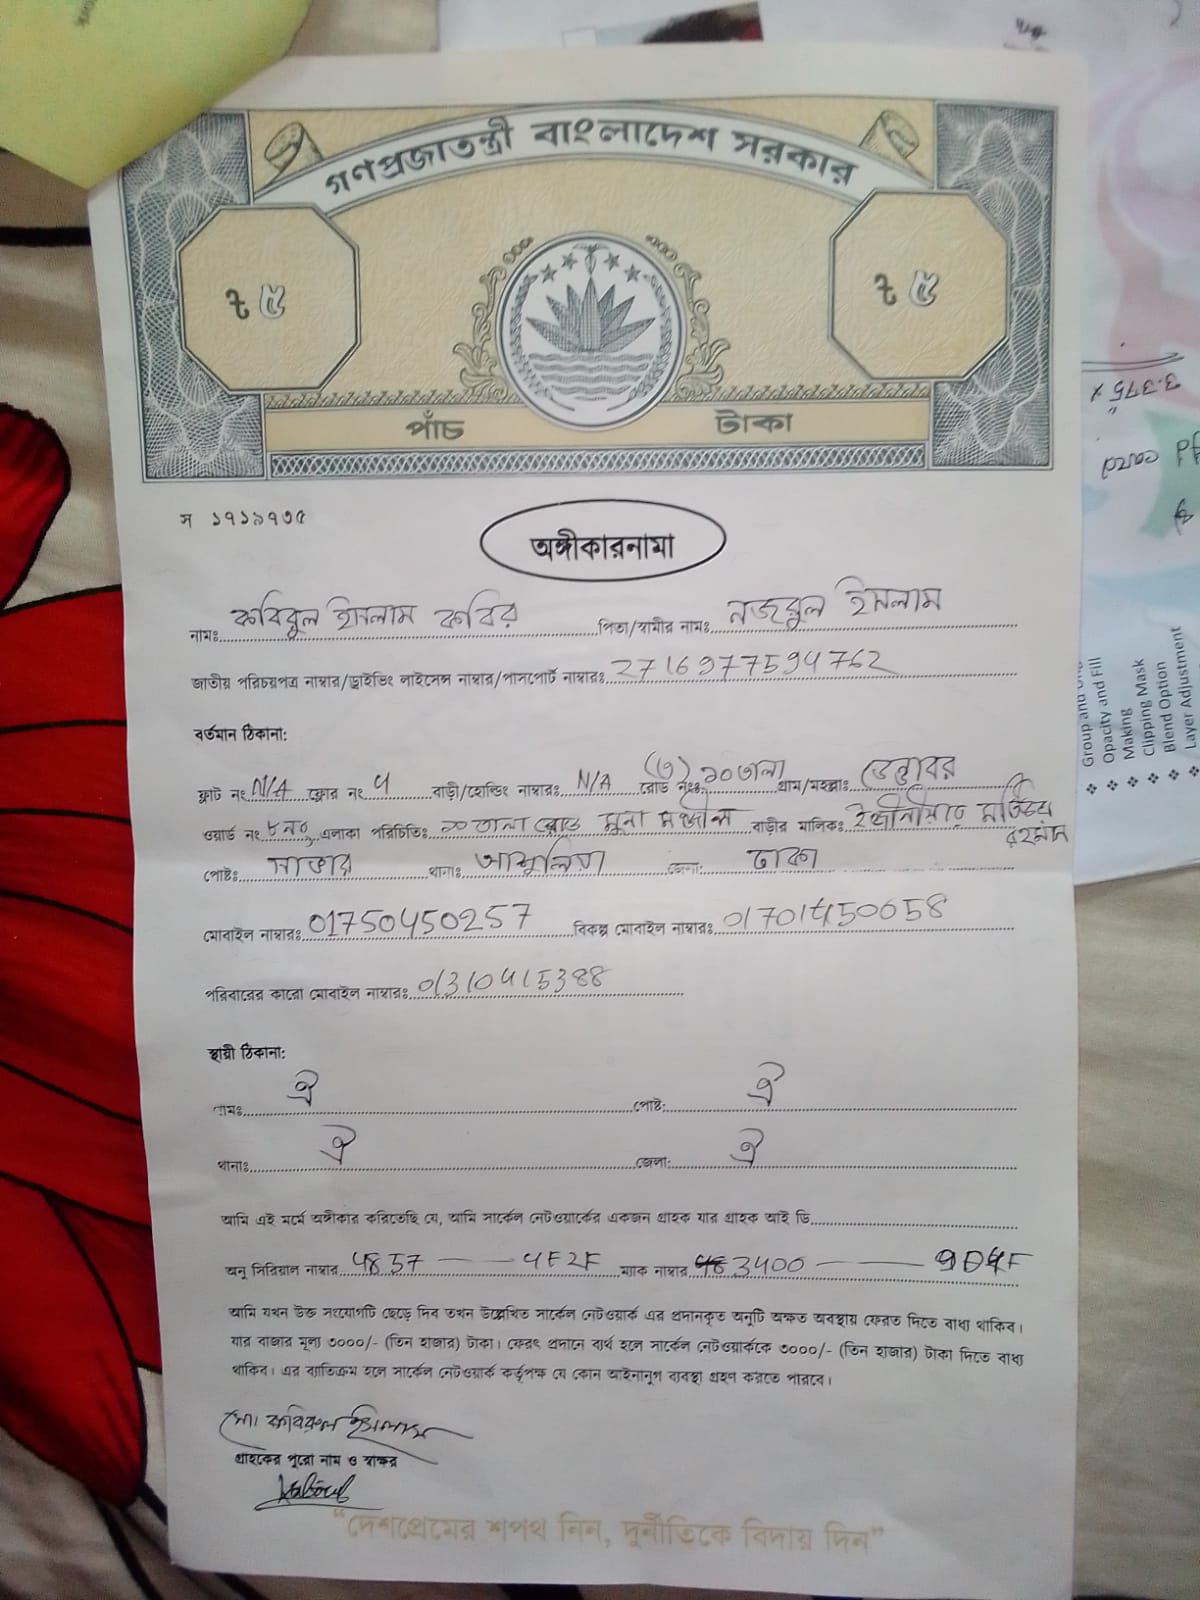 গণপ্রজাতন্ত্রী বাংলাদেশ সরকার
৳ ৫
৳ ৫
পাঁচ টাকা
স ১৭১৯৭৩৫
অঙ্গীকারনামা
নামঃ কবিরুল ইসলাম কবির পিতা/স্বামীর নামঃ নজরুল ইসলাম
জাতীয় পরিচয়পত্র নাম্বার/ড্রাইভিং লাইসেন্স নাম্বার/পাসপোর্ট নাম্বারঃ 2716977594762
বর্তমান ঠিকানা:
ফ্লাট নং N/A ফ্লোর নং ৭ বাড়ী/হোল্ডিং নাম্বারঃ N/A রোড নংঃ (৩) ১০তালা গ্রাম/মহল্লাঃ ডেন্ডাবর
ওয়ার্ড নং ৮নং এলাকা পরিচিতিঃ ১০তালা রোড মুনা মঞ্জীল বাড়ীর মালিকঃ ইঞ্জীনীয়ার মতিউর রহমান
পোষ্টঃ সাভার থানাঃ আশুলিয়া জেলা: ঢাকা
মোবাইল নাম্বারঃ 01750450257 বিকল্প মোবাইল নাম্বারঃ 01701450658
পরিবারের কারো মোবাইল নাম্বারঃ 01310415388
স্থায়ী ঠিকানা:
ঐ পোষ্ট: ঐ
থানাঃ ঐ জেলা: ঐ
আমি এই মর্মে অঙ্গীকার করিতেছি যে, আমি সার্কেল নেটওয়ার্কের একজন গ্রাহক যার গ্রাহক আই ডি
অনু সিরিয়াল নাম্বার 4857 — 4F2F ম্যাক নাম্বার 3400 —
আমি যখন উক্ত সংযোগটি ছেড়ে দিব তখন উল্লেখিত সার্কেল নেটওয়ার্ক এর প্রদানকৃত অনুটি অক্ষত অবস্থায় ফেরত দিতে বাধ্য থাকিব।
যার বাজার মূল্য ৩০০০/- (তিন হাজার) টাকা। ফেরৎ প্রদানে ব্যর্থ হলে সার্কেল নেটওয়ার্ককে ৩০০০/- (তিন হাজার) টাকা দিতে বাধ্য
থাকিব। এর ব্যতিক্রম হলে সার্কেল নেটওয়ার্ক কর্তৃপক্ষ যে কোন আইনানুগ ব্যবস্থা গ্রহণ করতে পারবে।
মোঃ কবিরুল ইসলাম
গ্রাহকের পুরো নাম ও স্বাক্ষর
"দেশপ্রেমের শপথ নিন, দুর্নীতিকে বিদায় দিন"
3.375" x
Opacity and Fill
Making
Clipping Mask
Blend Option
Layer Adjustment